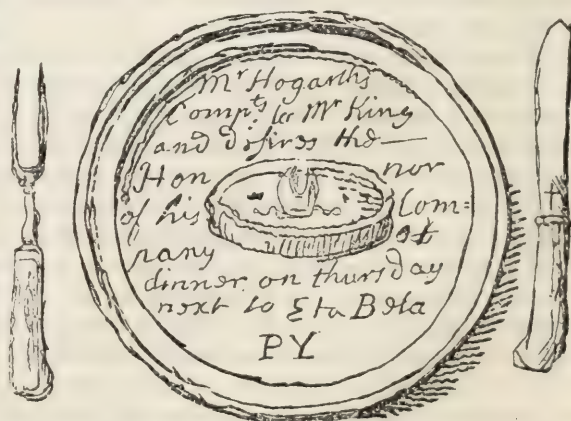 Mr Hogarth's
Compts to Mr King
and desires the —
Hon nor
of his Com=
pany at
dinner on thursday
next to Eta Beta
PY